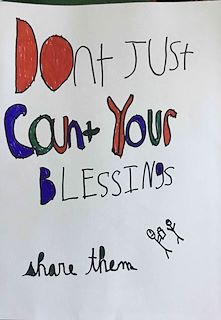 DOnt JUst
Count Your
BLESSINgS
share them